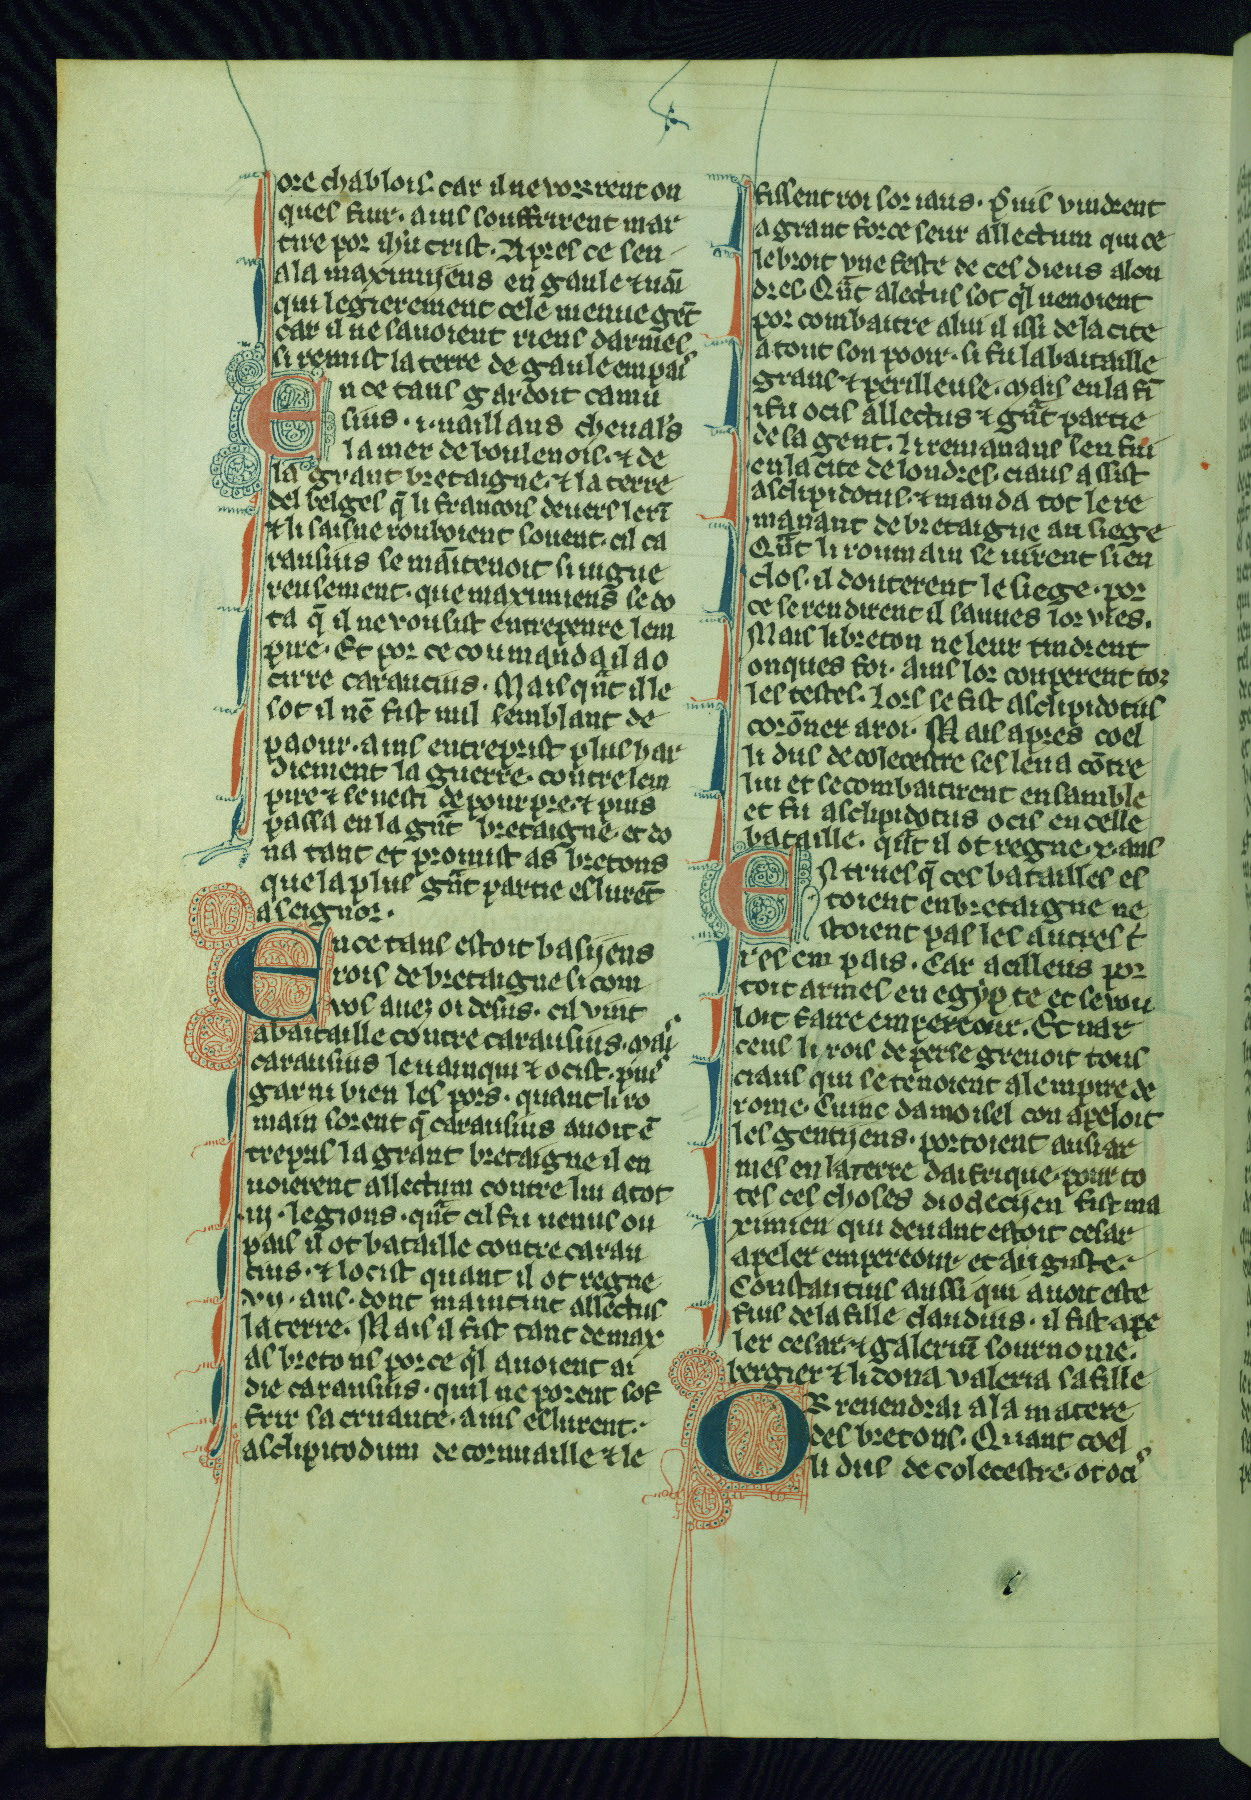 ore chablois. car il ne vorrent on
ques fuir. ains souffrirent mar
tire por ihu crist. Apres ce sen
ala maximijens en gaule ⁊ uāi
qui legierement cele menue gēt
car il ne sauoient riens darmes
si remist la terre de gaule em pais
En ce tans gardoit carau
sius .i. uaillans cheual's
la mer de boulenois. ⁊ de
la grant bretaigne. ⁊ la terre
des belges q̄ li francois deuers lerī
⁊ li saisne rouboient souent. cil ca
rausius se māitenoit si uigue
reusement. que maximiens se do
ta q̄ il ne vousist entrepenre lem
pire. Et por ce coumanda il a o
cirre caraucius. Mais qūt il le
sot il nē fist nul semblant de
paour. ains entreprist plus har
diement la guerre. contre lem
pire ⁊ se uesti de pourpre. ⁊ puis
passa en la gūt bretaigne. et do
na tant et promist as bretons
que la plus gūt partie eslurēt
a seignor.
En ce tans estoit basijens
rois de bretaigne si com
vos auez oi desus. cil vint
a bataille contre carausius. mais
carausius le uainqui ⁊ ocist. puis
garni bien les pors. quant li ro
main sorent q̄ carausius auoit ē
trepris la grant bretaigne il en
uoierent allectum contre lui a tot
.iij. legions. qūt cil fu uenus ou
pais il ot bataille contre carau
cius. ⁊ locist quant il ot regne
vij. ans. dont maintint allectus
la terre. Mais il fist tant de max
as bretons por ce q̄l auoient ai
die carausius. quil ne porent sof
frir sa cruaute. ains eslurent.
asclipitodum de cornuaille ⁊ le
fissent roi sor iaus. Puis vindrent
a grant force seur allectum qui ce
lebroit vne feste de ces dieus a lon
dres. Qūt alectus sot q̄l uenoient
por combaitre a lui il issi de la cite
a tout son pooir. si fu la bataille
grans ⁊ perilleuse. mais en la fī
i fu ocis allectus ⁊ gūt partie
de sa gent. li remanans sen fui
en la cite de londres. ciaus assist
asclipidotus. ⁊ manda tot le re
manant de bretaigne au siege
Qūt li roumain se uirent si en
clos. il douterent le siege. por
ce se rendirent il sauues lor vies.
Mais li breton ne leur tindrent
onques foi. ains lor couperent tor
les testes. lors se fist asclipidotus
corōner a roi. Mais apres coel
li dus de colecestre ses leua cōtre
lui et se combaitirent ensamble
et fu asclipidotus ocis en celle
bataille. qūt il ot regne .x. ans
Entrues q̄ ces batailles es
toient en bretaigne ne
stoient pas les autres t̄
res em pais. Car acilleus por
toit armes en egypte et se vou
loit faire empereour. Et nar
ceus li rois de perse greuoit tous
ciaus qui se tenoient a lempire de
rome. Cuinc damoisel con apeloit
les gentijens. portoient ausi ar
mes en la terre daifrique. pour to
tes ces choses dioclecijen fist ma
ximien qui deuant estoit cesar
apeler empereour et auguste.
Constantius aussi qui auoit este
fius de la fille claudius. il fist ape
ler cesar. ⁊ galeriū sournome.
bergier ⁊ li dona valeria sa fille
OR reuendrai a la matere
des bretons. Quant coel
li dus de colecestre. ot ocis